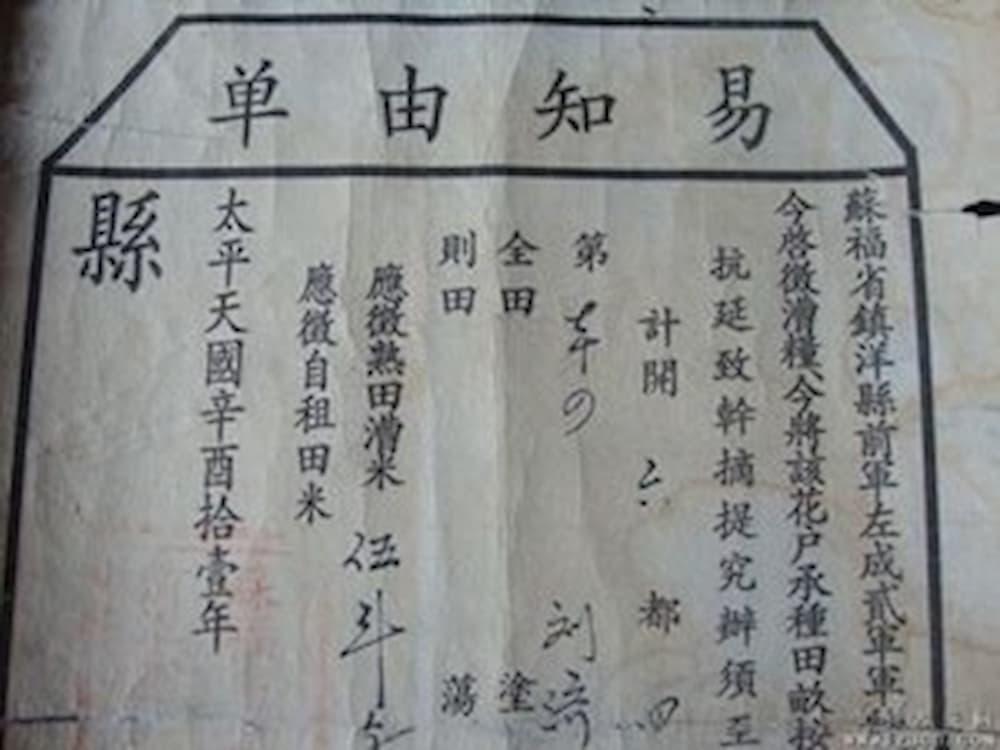 易知由单
蘇福省鎮洋縣前軍左成貳軍軍
今啓徵漕糧今將該花户承種田畝按
抗延致幹摘提究辦須至
計開 六 都
第
全田 塗
則田 蕩
應徵熟田漕米 伍斗
應徵自租田米
太平天國辛酉拾壹年
縣